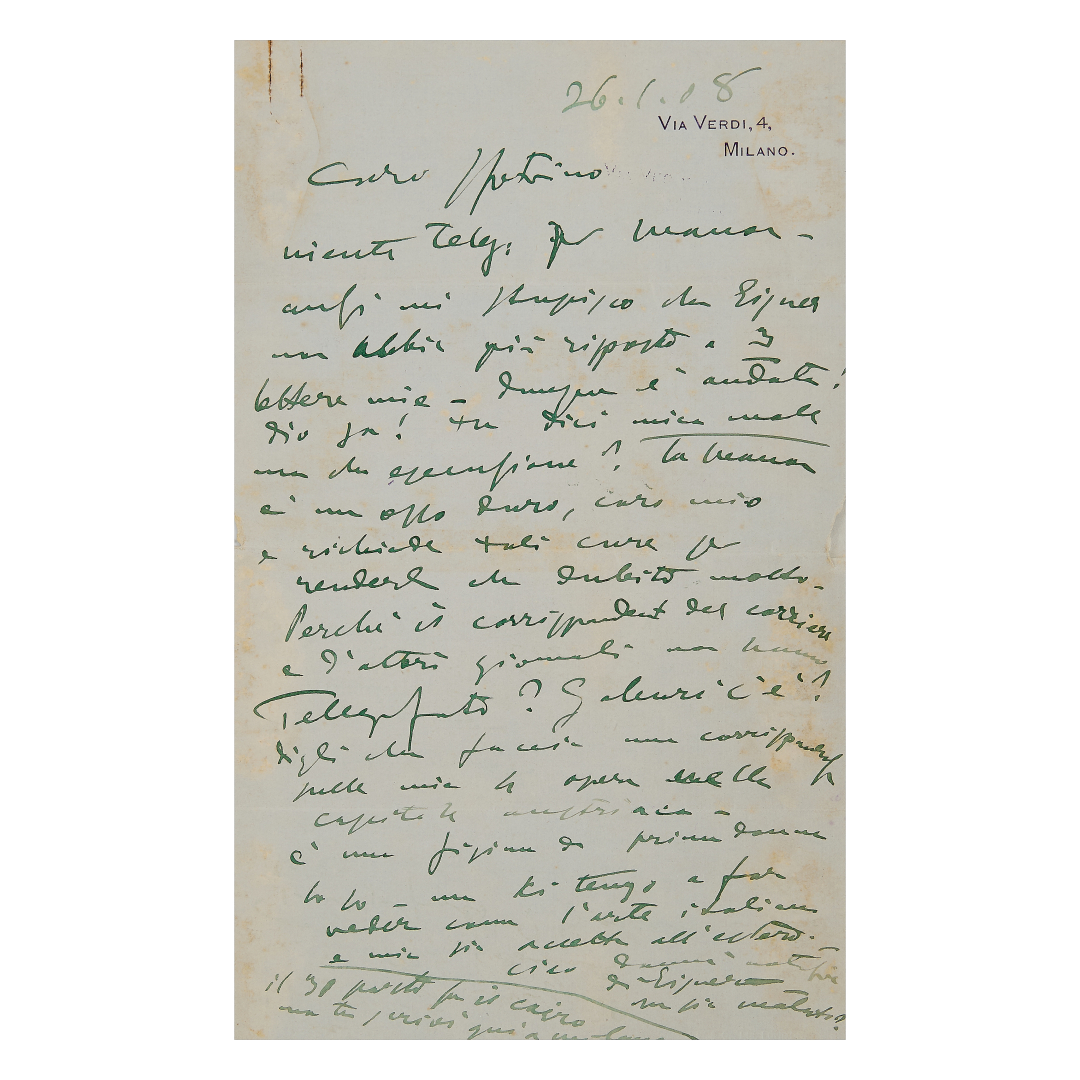 26.1.08
VIA VERDI, 4,
MILANO.
Caro
niente Teleg. per Manon -
anzi mi stupisco che Eisner
non abbia più risposto a 3
lettere mie - dunque è andata!
dio sa! tu dici mica male
ma che esecuzione? la Manon
è un osso duro, caro mio
e richiede tali cure per
renderla che dubito molto -
Perchè il corrispondent del corriere
e d'altri giornali non hanno
Telegrafato? c'è?
digli che faccia una corrispondenza
sulle mie opere nelle
capitale austriaca -
è una di prima donna
lo so - ma ci tengo a far
veder come l'arte italiana
e mia sia accetta all'estero -
ciao
di Eisner
sia malato?
il 30 parto per il cairo
ma tu scrivi qui a milano